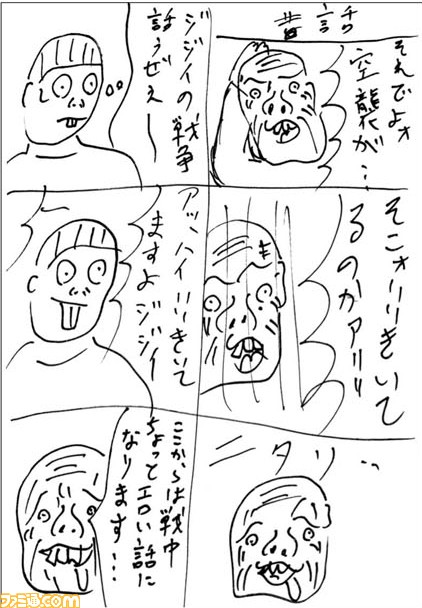 それでよォ
空襲が…
ジジイの戦争
話うぜえー
そこォ!!きいて
るのかァ!!
アッハイ!!きいて
ますよジジイ
ニタリ…
ここからは戦中
ちょっとエロい話に
なります…
ファミ通.com